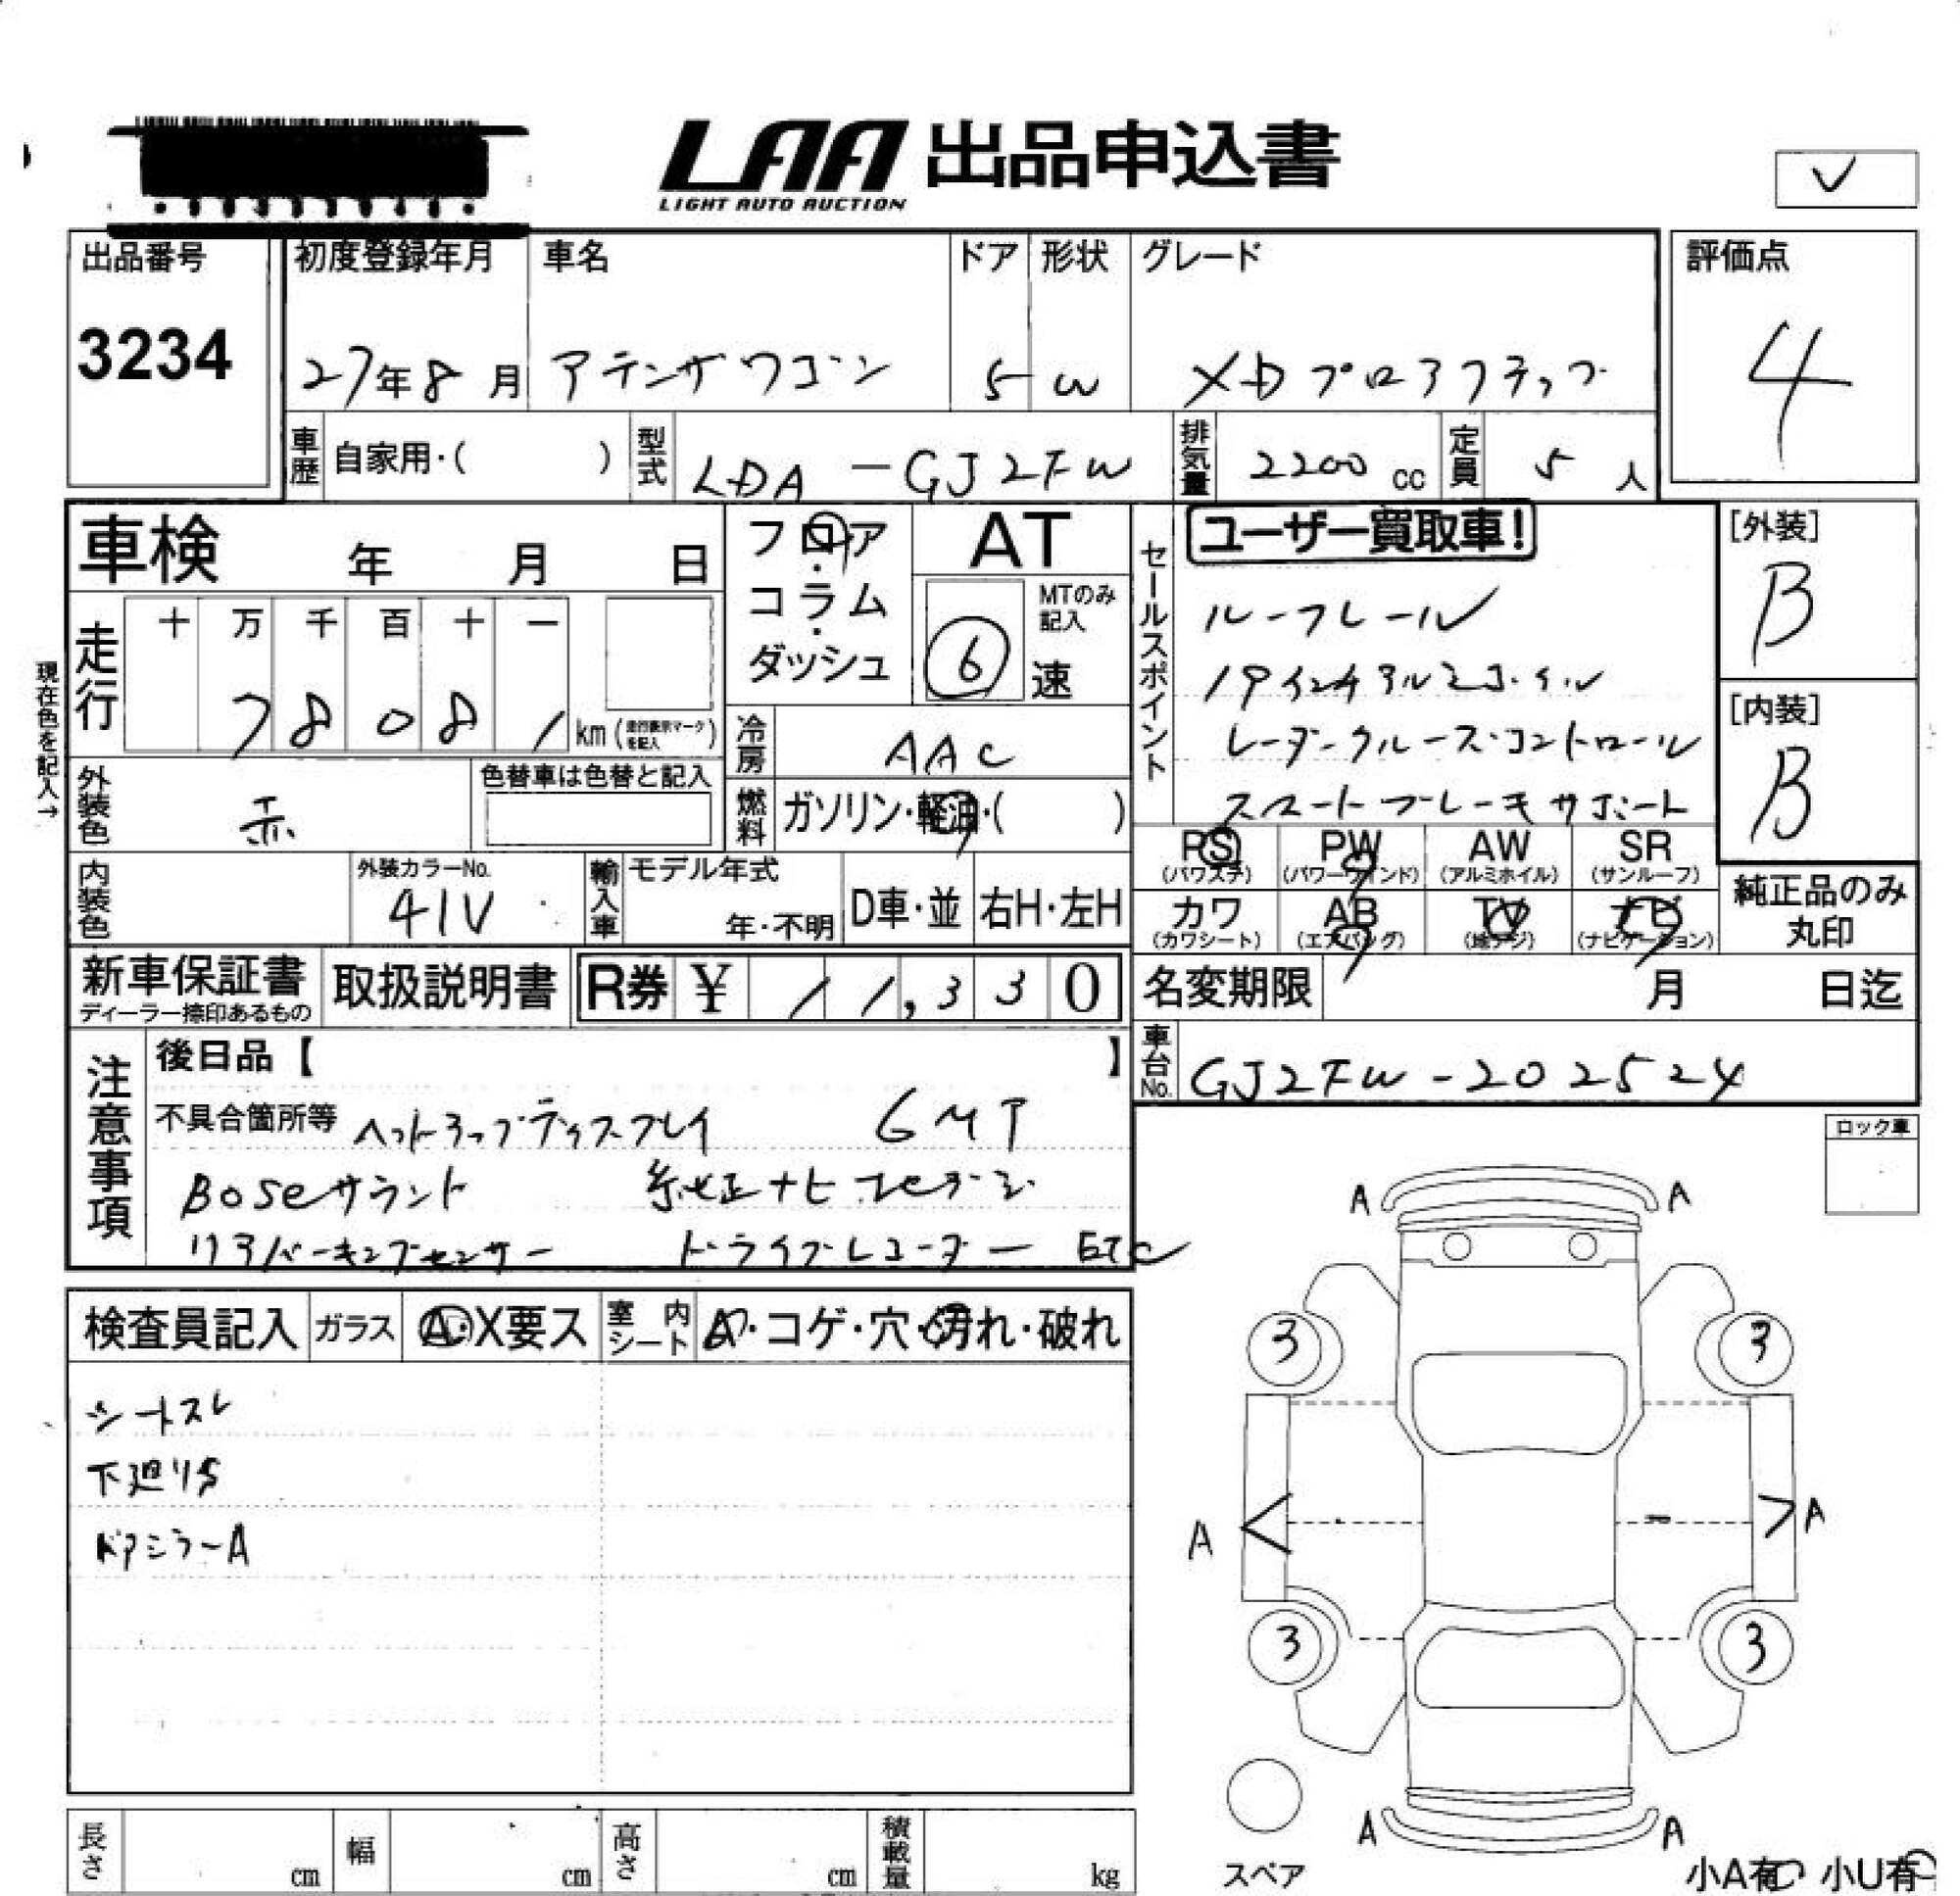 LAA 出品申込書
LIGHT AUTO AUCTION
出品番号
3234
初度登録年月
27年8月
車名
アテンザワゴン
ドア
5
形状
W
グレード
XD プロアクティブ
評価点
4
車歴 自家用・( )
型式 LDA-GJ2FW
排気量 2200 cc
定員 5 人
車検 年 月 日
フロア・コラム・ダッシュ
AT
MTのみ記入
6 速
走行
十 万 千 百 十 一
7 8 0 8 1 km (走行表示マークを記入)
現在色を記入→
冷房 AAC
外装色 赤
色替車は色替と記入
燃料 ガソリン・軽油・( )
内装色
外装カラーNo.
41V
輸入車
モデル年式
年・不明
D車・並
右H・左H
セールスポイント
ユーザー買取車!
ルーフレール
19インチアルミホイル
レーダークルーズコントロール
スマートブレーキサポート
PS (パワステ)
PW (パワーウインド)
AW (アルミホイル)
SR (サンルーフ)
カワ (カワシート)
AB (エアバッグ)
TV (地デジ)
ナビ (ナビゲーション)
[外装]
B
[内装]
B
純正品のみ丸印
新車保証書
ディーラー捺印あるもの
取扱説明書
R券 ¥ 11,330
名変期限 月 日迄
車台No. GJ2FW-202524
注意事項
後日品【 】
不具合箇所等 ヘッドアップディスプレイ 6MT
BOSEサウンド 純正ナビ フルセグ
リアパーキングセンサー ドライブレコーダー ETC
ロック車
検査員記入
ガラス
A・X要ス
室内シート
・コゲ・穴・汚れ・破れ
シートスレ
下廻りS
ドアミラーA
A A
3 3
A A
3 3
A A
スペア
小A有 小U有
長さ cm
幅 cm
高さ cm
積載量 kg